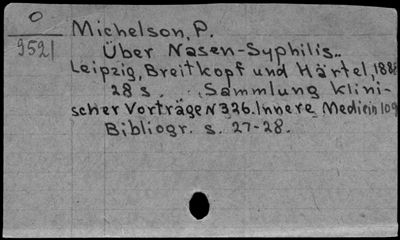 O
9521
Michelson, P.
Über Nasen-Syphilis..
Leipzig, Breitkopf und Härtel, 1888
28 s. Sammlung klini-
scher Vorträge N 326. Innere Medicin 109
Bibliogr. s. 27-28.